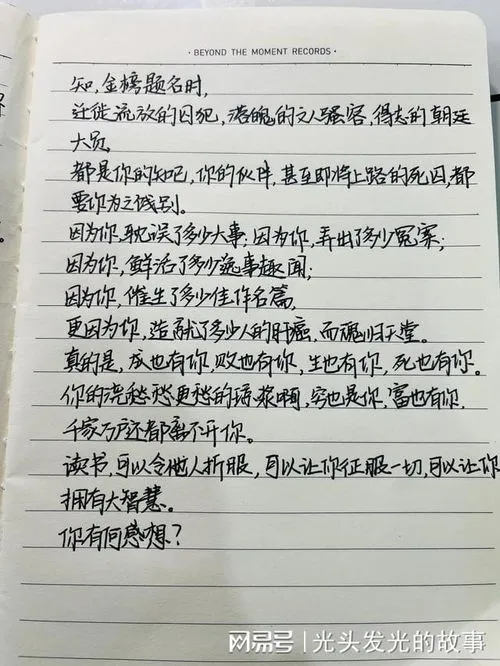 · BEYOND THE MOMENT RECORDS ·
知,金榜题名时,
迁徙流放的囚犯,落魄的文人骚客,得志的朝廷
大员
都是你的知吧,你的伙伴,甚至即将上路的死囚,都
要你为之饯别。
因为你,耽误了多少大事;因为你,弄出了多少冤案;
因为你,鲜活了多少逸事趣闻;
因为你,催生了多少佳作名篇,
更因为你,造就了多少人的肝癌,而魂归天堂。
真的是,成也有你,败也有你,生也有你,死也有你。
你的浇愁愁更愁的琼浆啊,穷也是你,富也有你,
千家万户还都离不开你。
读书,可以令他人折服,可以让你征服一切,可以让你
拥有大智慧。
你有何感想?
网易号 | 光头发光的故事